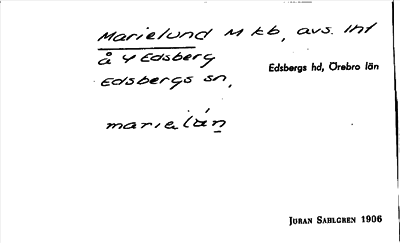 Marielund M kb, avs. Int
å 4 Edsberg
Edsbergs hd, Örebro län
Edsbergs sn,
marielán
JÖRAN SAHLGREN 1906